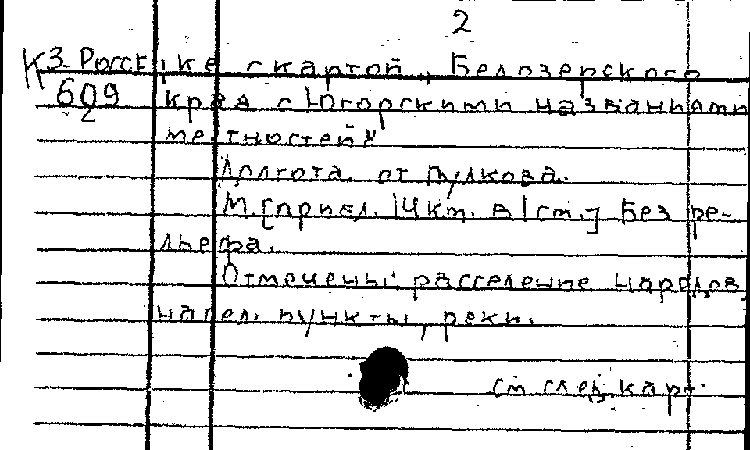 2
К 3-Россе
609
2
ке с картой „Белозерского
края с Югорскими названиями
местностей"
Долгота от Пулкова.
М. [прибл. 14 км. в 1 см.] Без ре-
льефа.
Отмечены: расселение народов,
насел. пункты, реки.
см след. карт.